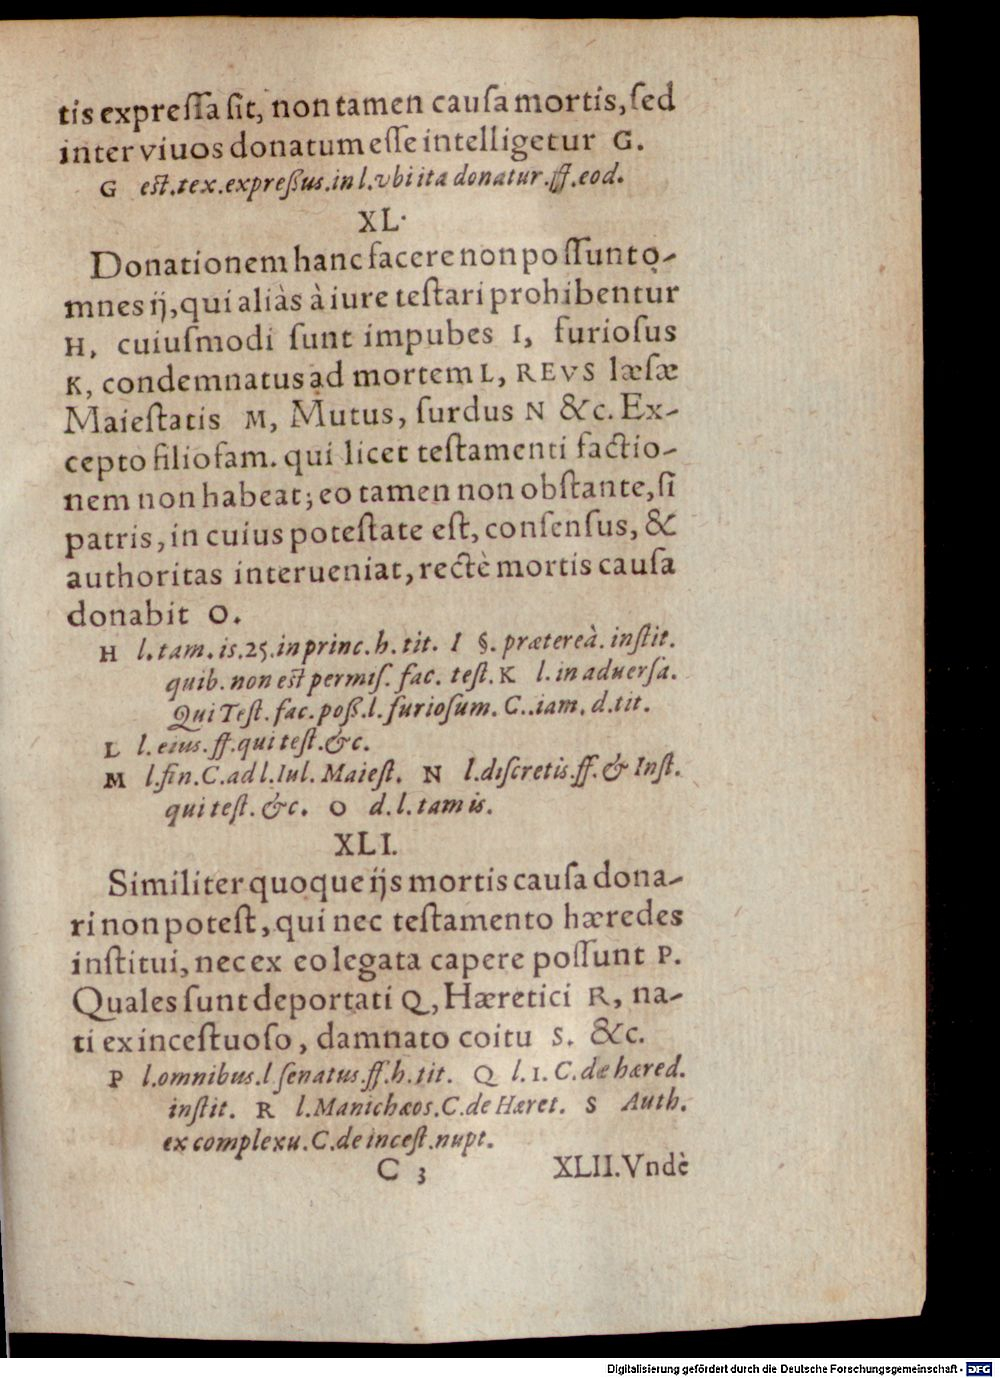 tis expreſſa ſit, non tamen cauſa mortis, ſed
inter viuos donatum eſſe intelligetur G.
G eſt.tex.expreßus.in l.vbi ita donatur.ff.eod.
XL.
Donationem hanc facere non poſſunt o-
mnes ij, qui aliàs à iure teſtari prohibentur
H, cuiuſmodi ſunt impubes I, furioſus
K, condemnatus ad mortem L, REVS læſæ
Maieſtatis M, Mutus, ſurdus N &c. Ex-
cepto filiofam. qui licet teſtamenti factio-
nem non habeat; eo tamen non obſtante, ſi
patris, in cuius poteſtate eſt, conſenſus, &
authoritas interueniat, rectè mortis cauſa
donabit O.
H l.tam.is.25.in princ.h.tit. I §.prætereà.inſtit.
quib.non eſt permiſ.fac.teſt. K l.in aduerſa.
Qui Teſt.fac.poß.l.furioſum.C..iam.d.tit.
L l.eius.ff.qui teſt.&c.
M l.fin.C.ad l.Iul.Maieſt. N l.diſcretis.ff.& Inſt.
qui teſt.&c. O d.l.tam is.
XLI.
Similiter quoque ijs mortis cauſa dona-
ri non poteſt, qui nec teſtamento hæredes
inſtitui, nec ex eo legata capere poſſunt P.
Quales ſunt deportati Q, Hæretici R, na-
ti ex inceſtuoſo, damnato coitu S. &c.
P l.omnibus.l ſenatus.ff.h.tit. Q l.1.C.de hæred.
inſtit. R l.Manichæos.C.de Hæret. S Auth.
ex complexu.C.de inceſt.nupt.
C 3 XLII.Vndè
Digitalisierung gefördert durch die Deutsche Forschungsgemeinschaft - DFG